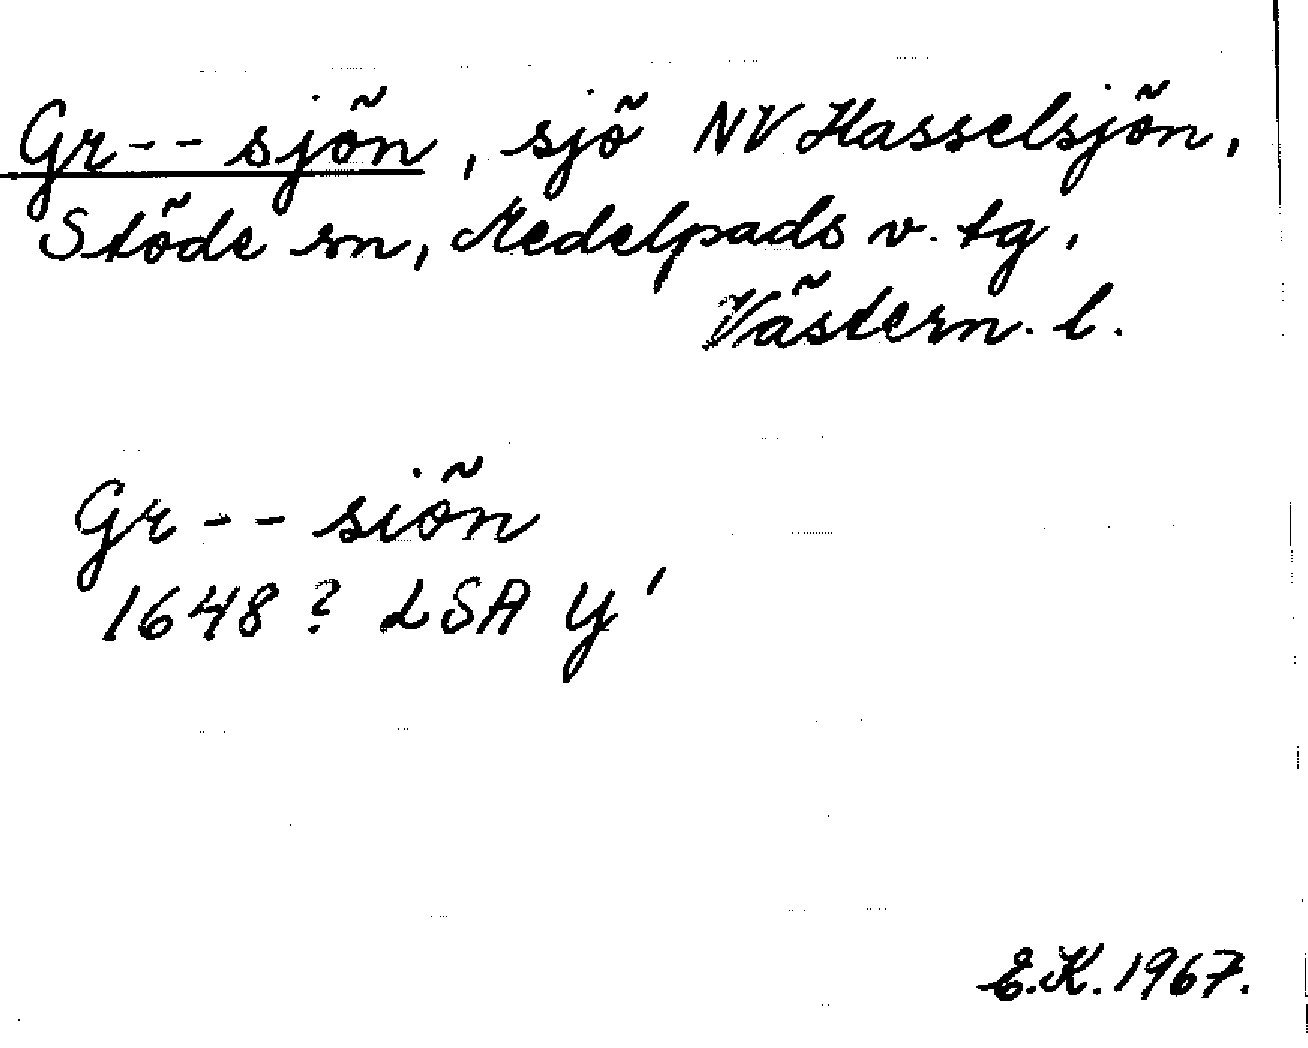 Gr-- sjön, sjö NV Hasselsjön,
Stöde sn, Medelpads v. tg,
Västern. l.
Gr -- siön
1648? LSA Y'
E.K. 1967.